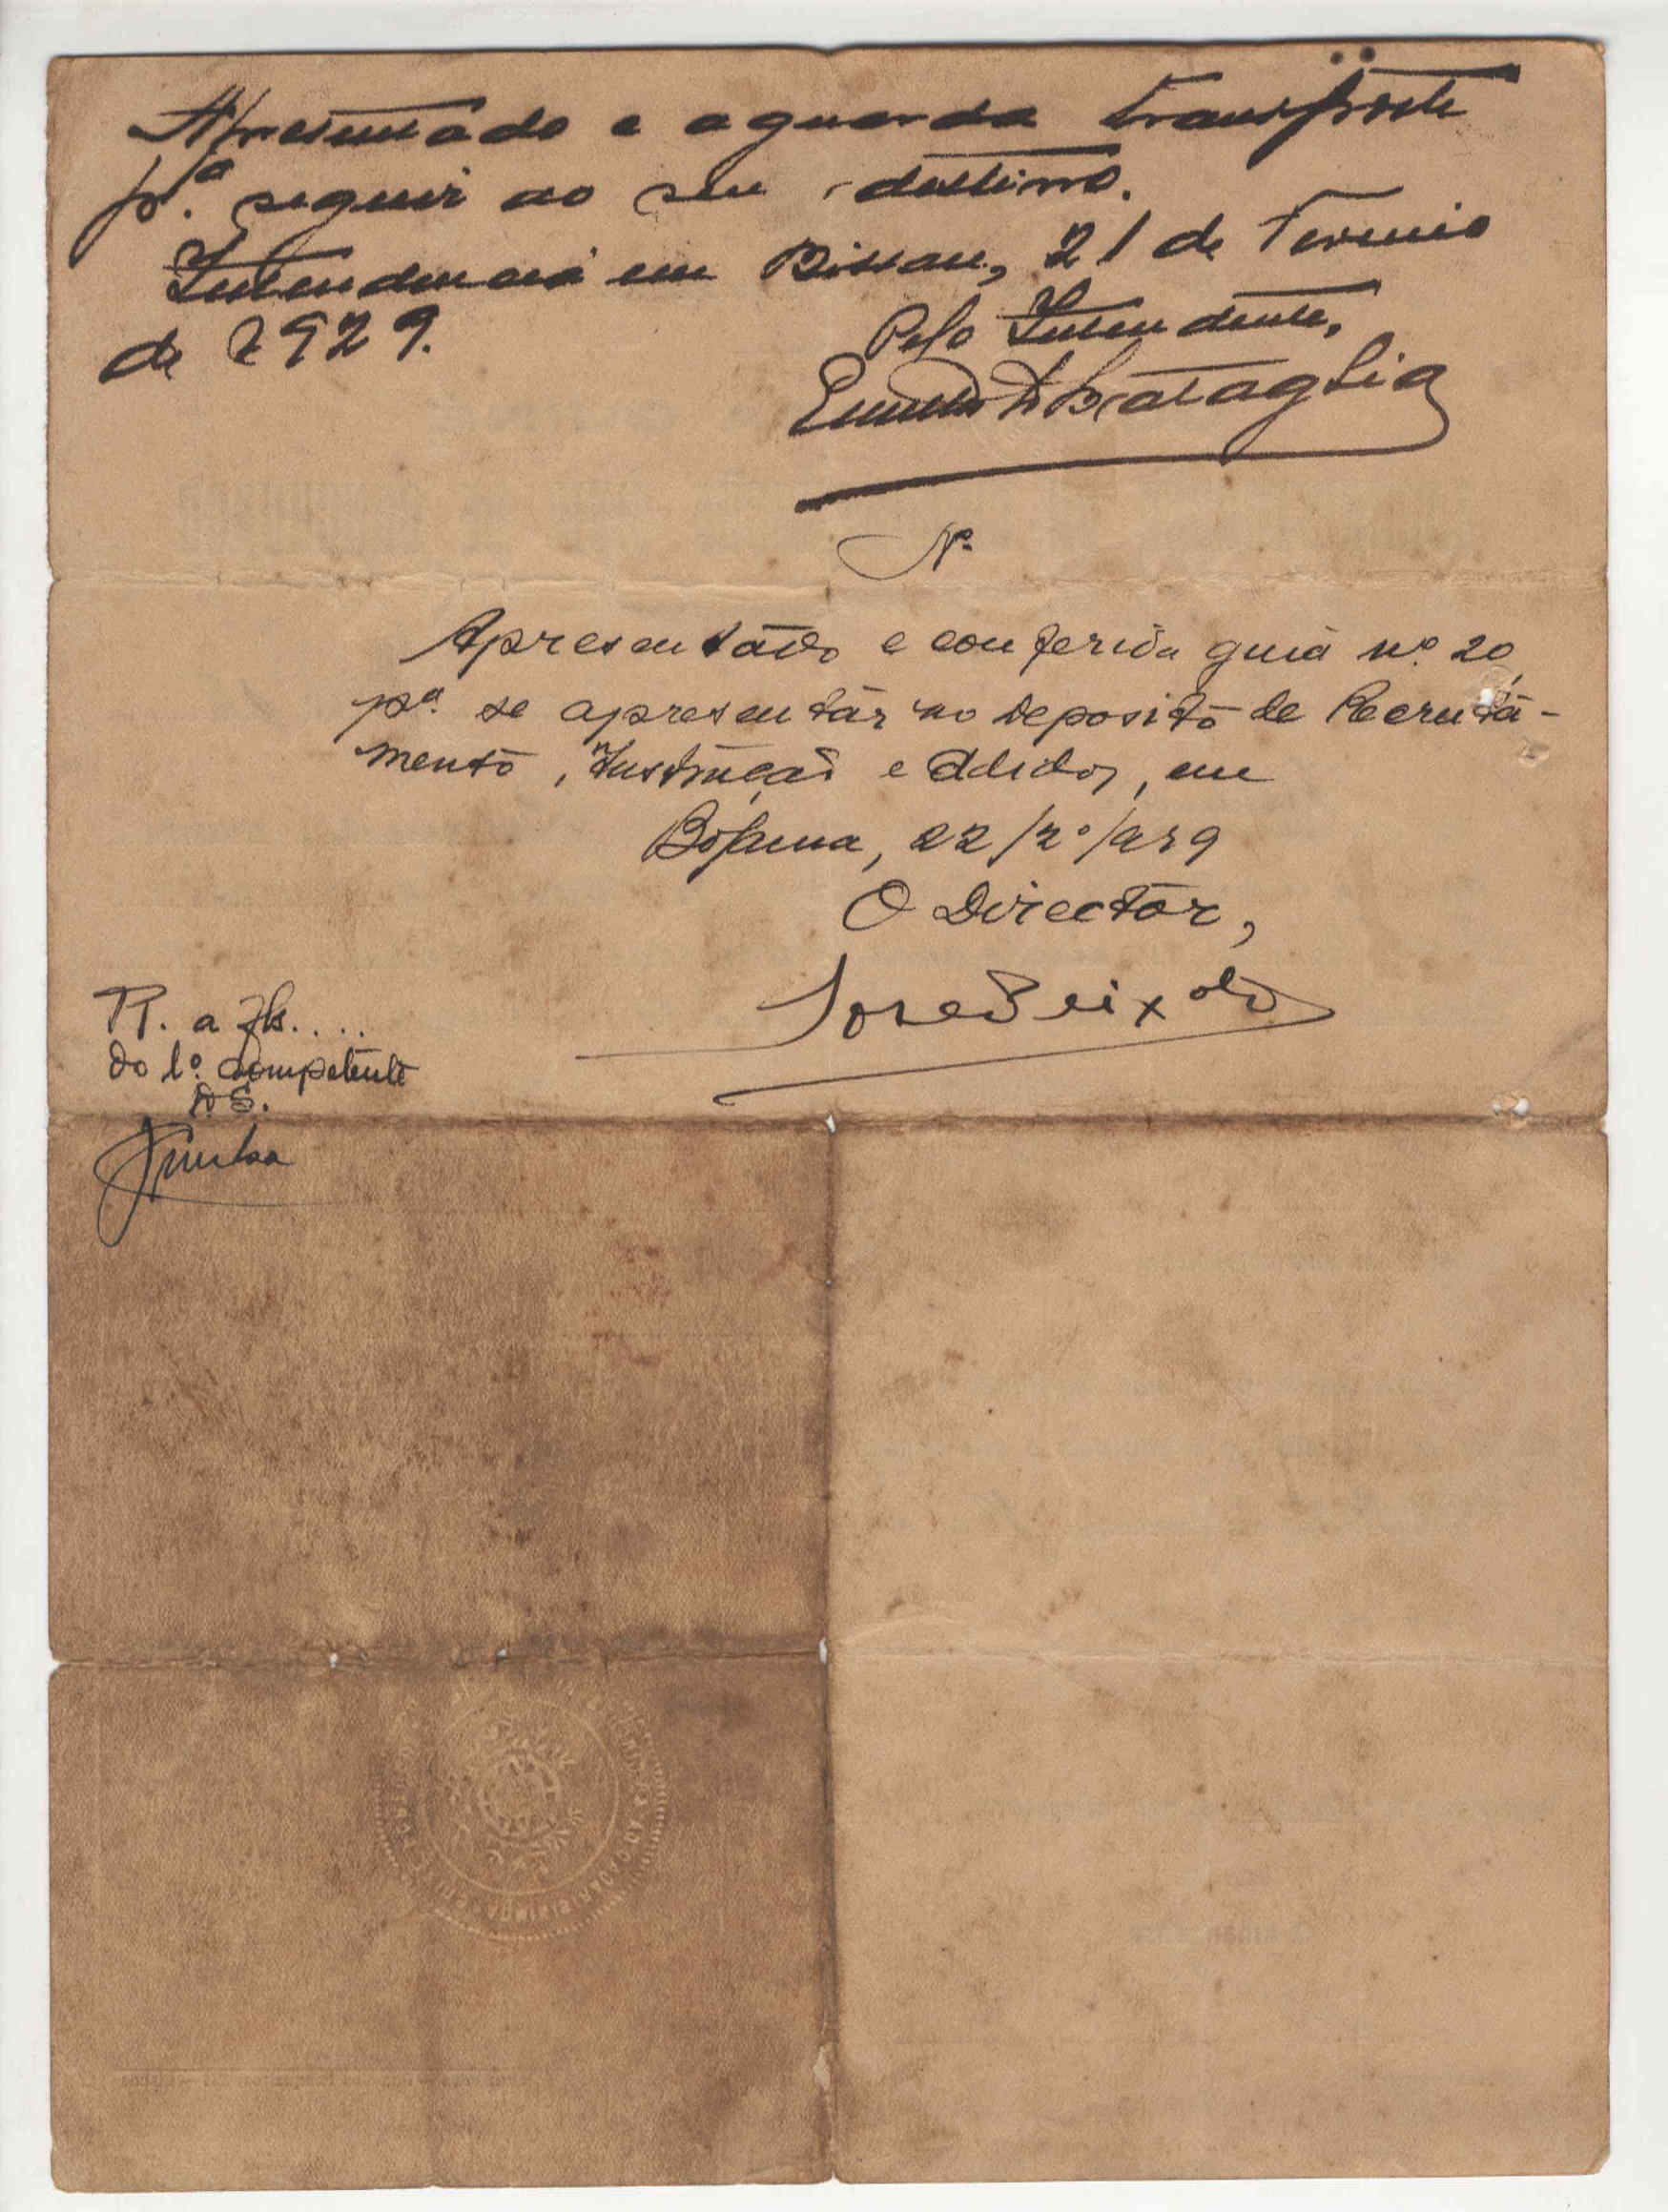 Apresentado e aguarda transporte
p.ª seguir ao seu destino.
Intendencia em Bissau, 21 de
de 1929.
Pelo Intendente,
Bataglia
Nº
Apresentado e conferida guia nº 20
pª. se apresentár no Deposito de Recrutá-
mento, Instrução e Adidos, em
Bolama, 22/2º/929
O Director,
José Peixoto
R. a fls....
do lº. competente
D.S.